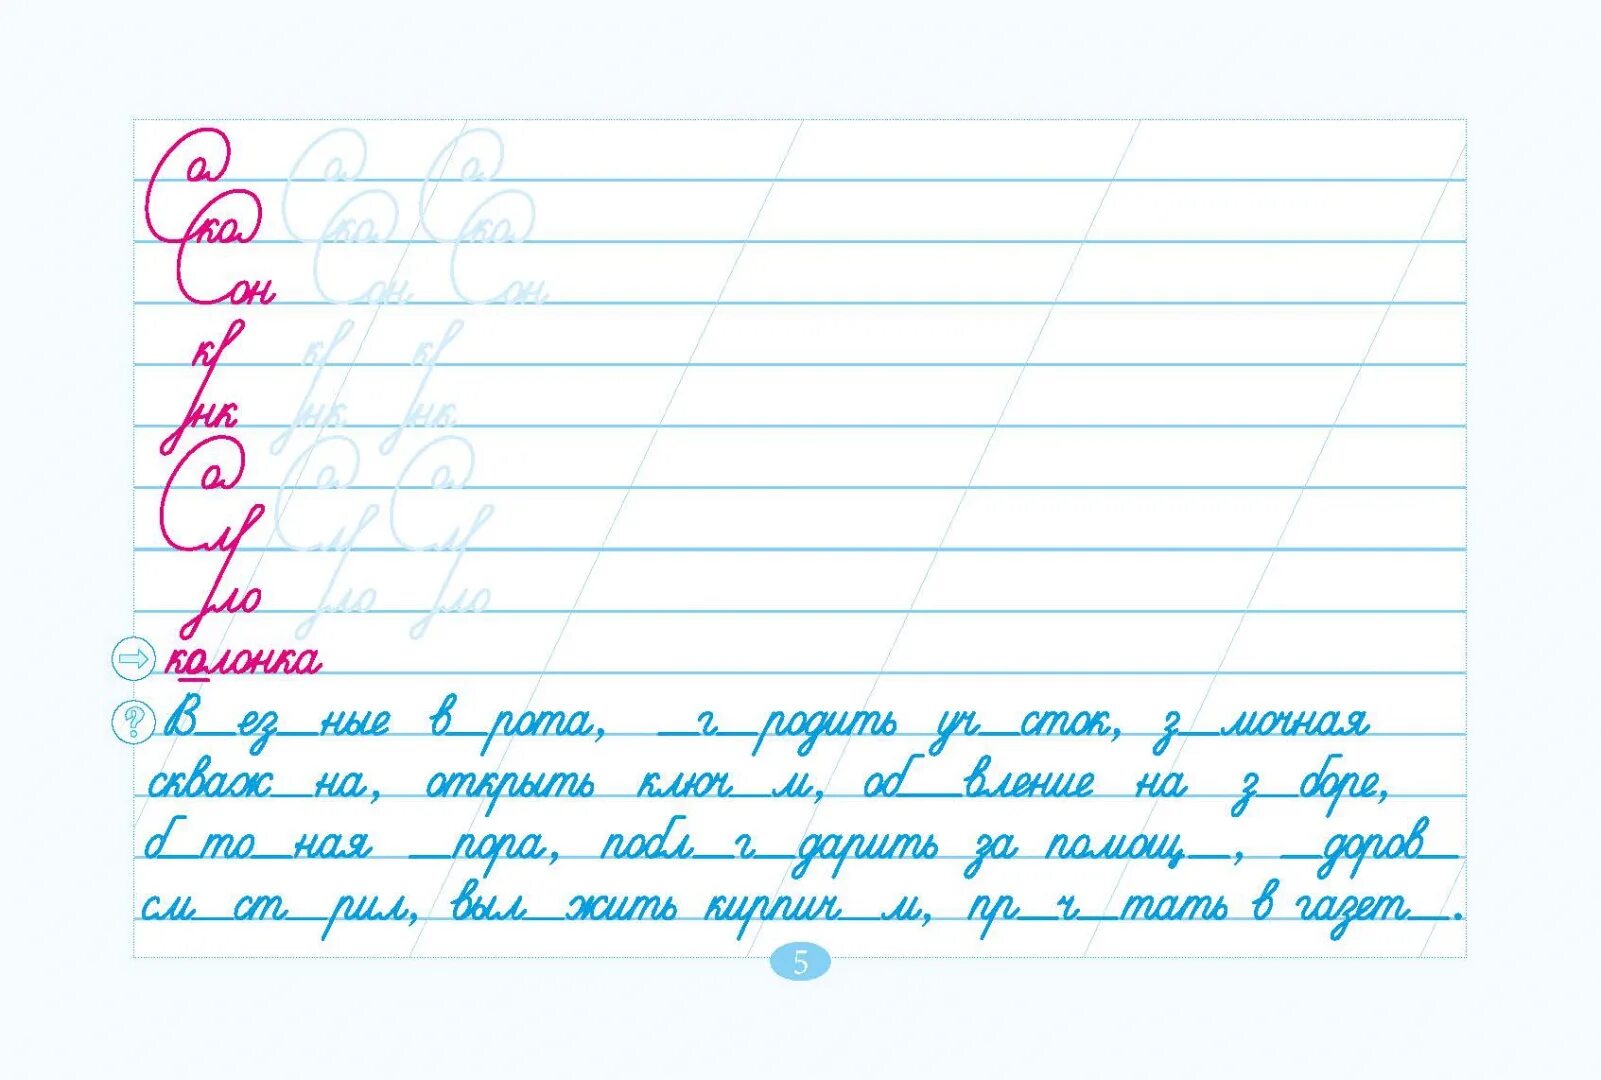 Со Со Со
Ско Ско Ско
Сон Сон Сон
к к к
нк нк нк
Со Со Со
См См См
ло ло ло
колонка
В_ез_ные в_рота, _г_родить уч_сток, з_мочная
скваж_на, открыть ключ_м, об_вление на з_боре,
б_то_ная _пора, побл_г_дарить за помощ_, _доров_
см_ст_рил, выл_жить кирпич_м, пр_ч_тать в газет_.
5